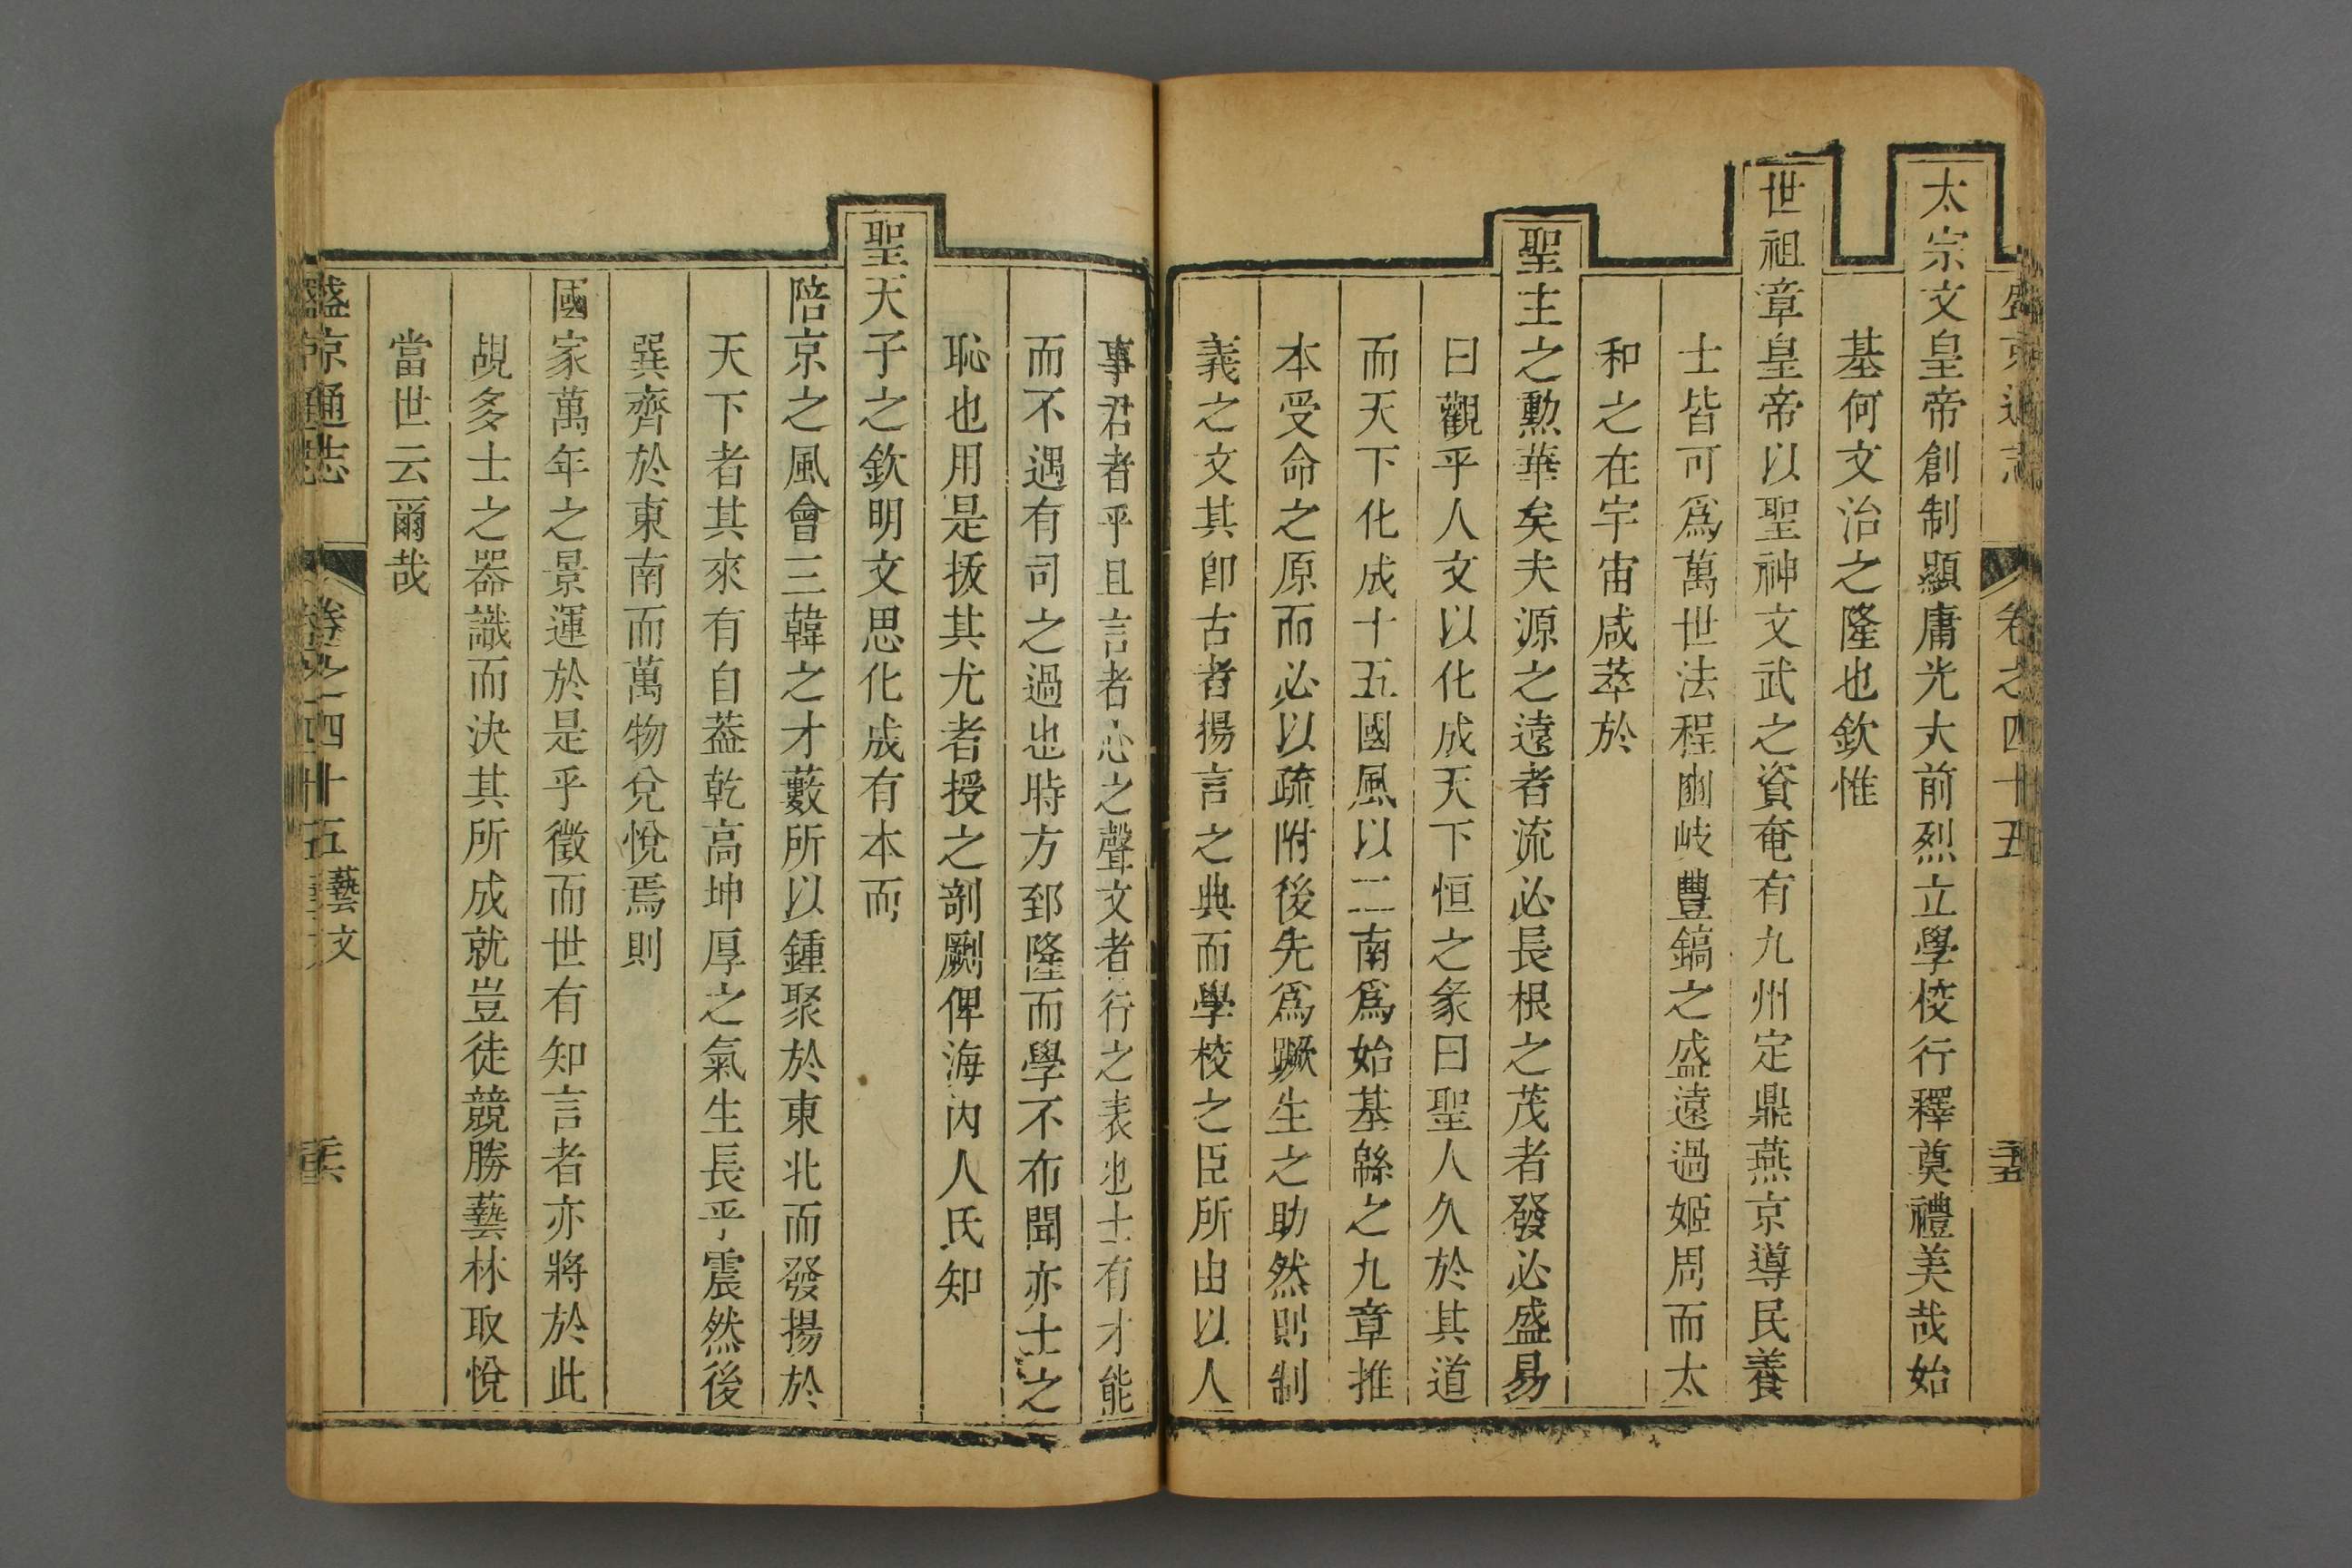 盛京通志 卷之四十五 三五
太宗文皇帝創制顯庸光大前烈立學校行釋奠禮美哉始
基何文治之隆也欽惟
世祖章皇帝以聖神文武之資奄有九州定鼎燕京導民養
士皆可爲萬世法程豳岐豐鎬之盛遠過姬周而太
和之在宇宙咸萃於
聖主之勲華矣夫源之遠者流必長根之茂者發必盛易
曰觀乎人文以化成天下恒之彖曰聖人久於其道
而天下化成十五國風以二南爲始基緜之九章推
本受命之原而必以疏附後先爲蹶生之助然則制
義之文其卽古者揚言之典而學校之臣所由以人
事君者乎且言者心之聲文者行之表也士有才能
而不遇有司之過也時方郅隆而學不布聞亦士之
恥也用是拔其尤者授之剞劂俾海內人氏知
聖天子之欽明文思化成有本而
陪京之風會三韓之才藪所以鍾聚於東北而發揚於
天下者其來有自葢乾高坤厚之氣生長乎震然後
巽齊於東南而萬物兌悅焉則
國家萬年之景運於是乎徵而世有知言者亦將於此
覘多士之器識而決其所成就豈徒競勝藝林取悅
當世云爾哉
盛京通志 卷之四十五 藝文